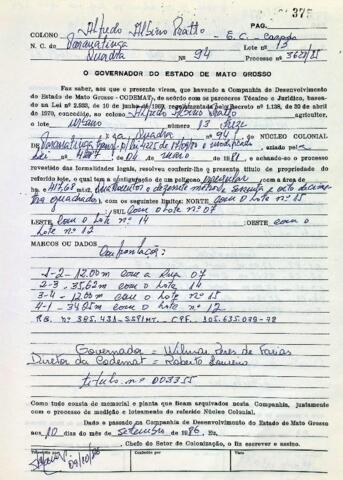 375
PAG.
COLONO Alfredo Albino Ratto - E.C. - casado
N. C. de Paranatinga Lote nº 13
Quadra Nº 94 Processo nº 3620/85
O GOVERNADOR DO ESTADO DE MATO GROSSO
Faz saber, aos que o presente virem, que havendo a Companhia de Desenvolvimento
do Estado de Mato Grosso - CODEMAT, de acórdo com os pareceres Técnico e Jurídico, basea-
do na Lei nº 2.938, de 10 de junho de 1969, regulamentada pelo Decreto nº 1.138, de 30 de abril
de 1970, concedido, ao colono Alfredo Albino Ratto agricultor,
o lote urbano número 13 treze
Quadra 94 do NÚCLEO COLONIAL
DE Paranatinga criado pela
Lei nº 4287 de 04 de 1981, e achando-se o processo
revestido das formalidades legais, resolveu conferir-lhe o presente título de propriedade do
referido lote, que tem a configuração de um polígono irregular com a área de
ha. e 417,68 m2
quadrados, com os seguintes limites: NORTE com o lote 15
SUL com o lote 07
LESTE com o lote nº 14 OESTE com o
lote nº 12
MARCOS OU DADOS Confrontação:
1-2 - 12.00m com a Rua 07
2-3 - 35,62m com o lote 14
3-4 - 12.00m com o lote nº 15
4-1 - com o lote nº 12
R.G. nº 385.431-SSP/MT. - CPF. 105.635.079-72
Governador = Wilmar Peres de Farias
Diretor da Codemat = Roberto
título nº 003355
Como tudo consta do memorial e planta que ficam arquivados nesta Companhia, juntamente
com o processo de medição e loteamento do referido Núcleo Colonial.
Dado e passado na Companhia de Desenvolvimento do Estado de Mato Grosso
aos 10 dias do mês de setembro de 1986. Eu,
Chefe do Setor de Colonização, o fiz escrever e assino.
Conferido Visto Visto
09/10/86